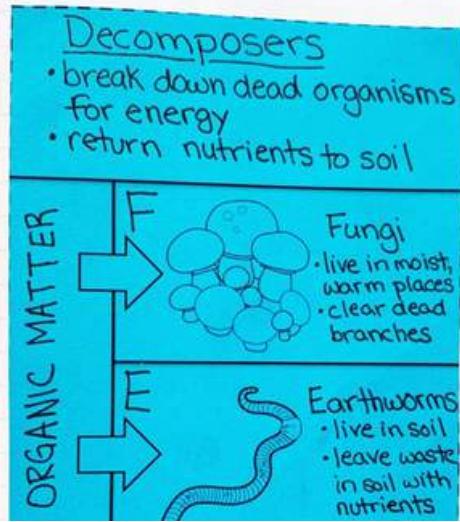 Decomposers
• break down dead organisms
for energy
• return nutrients to soil
ORGANIC MATTER
F
Fungi
• live in moist,
warm places
• clear dead
branches
E
Earthworms
• live in soil
• leave waste
in soil with
nutrients